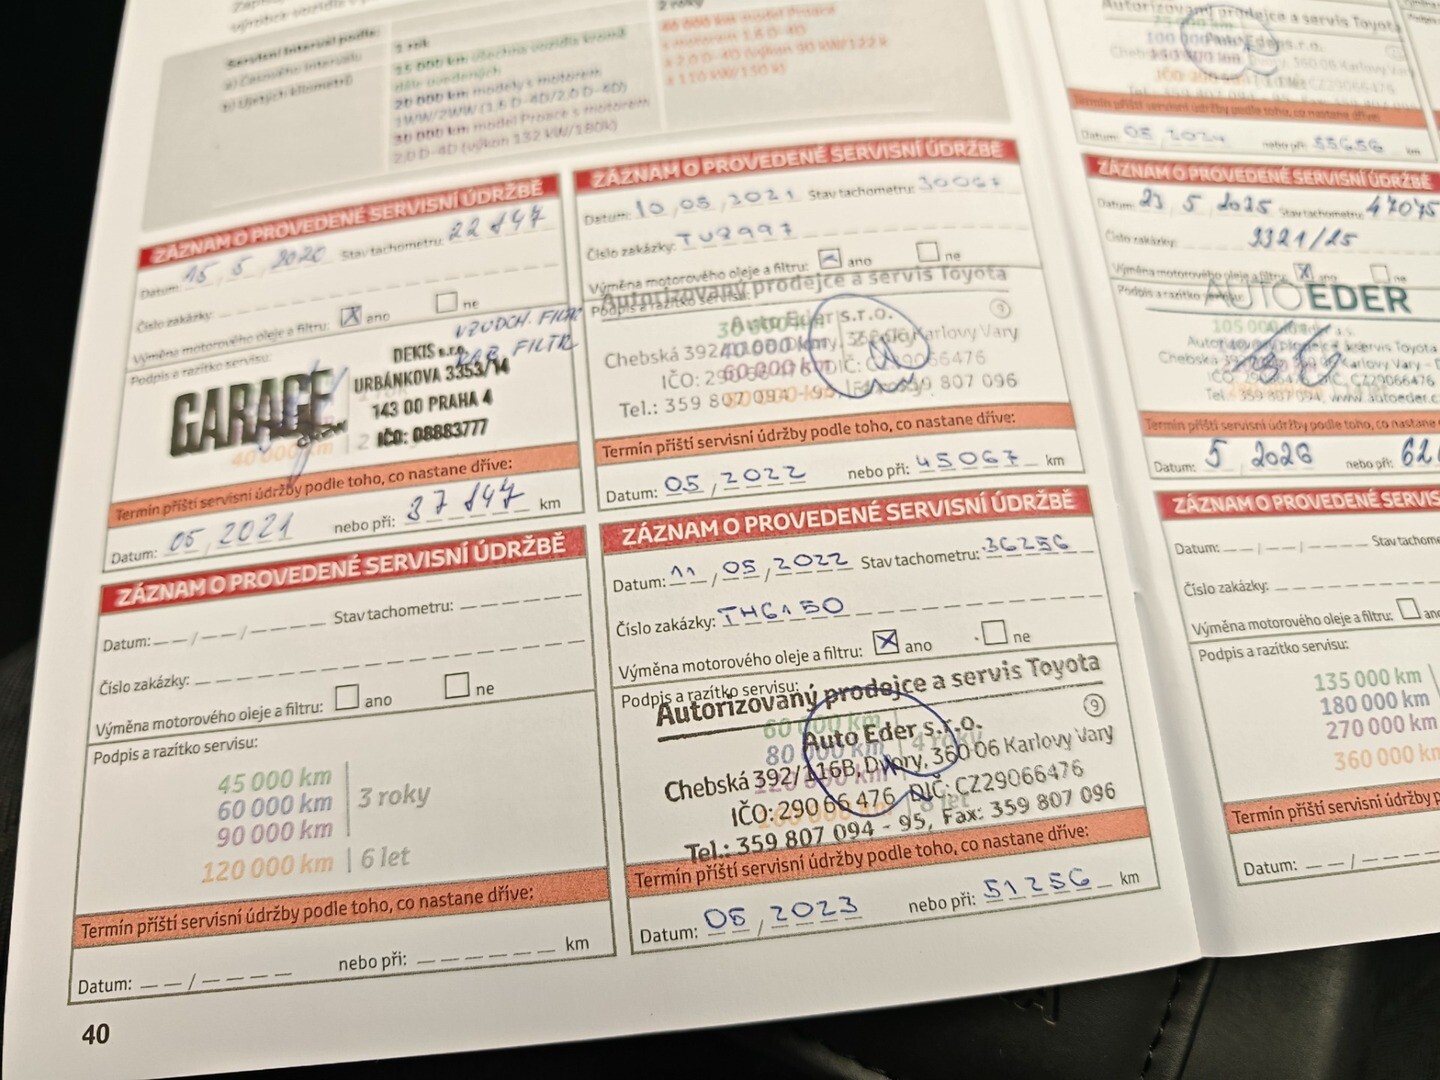 výrobce vozidla
Servisní interval podle:
a) Časového intervalu
b) Ujetých kilometrů
1 rok
15 000 km všechna vozidla kromě
dále uvedených
20 000 km modely s motorem
1WW/2WW (1,6 D-4D/2,0 D-4D)
30 000 km model Proace s motorem
2,0 D-4D (výkon 132 kW/180k)
2 roky
40 000 km model Proace
s motorem 1,6 D-4D
a 2,0 D-4D (výkon 90 kW/122 k
a 110 kW/150 k)
ZÁZNAM O PROVEDENÉ SERVISNÍ ÚDRŽBĚ
Datum: 15, 5, 2020 Stav tachometru: 22 847
Číslo zakázky:
Výměna motorového oleje a filtru: X ano ne
VZDUCH. FILTR
KAB. FILTR
Podpis a razítko servisu:
GARAGE
CREW
DEKIS s.r.o.
URBÁNKOVA 3353/14
143 00 PRAHA 4
IČO: 08883777
40 000 km | 2
Termín příští servisní údržby podle toho, co nastane dříve:
Datum: 05, 2021 nebo při: 37 847 km
ZÁZNAM O PROVEDENÉ SERVISNÍ ÚDRŽBĚ
Datum: __/__/____ Stav tachometru:
Číslo zakázky:
Výměna motorového oleje a filtru: ano ne
Podpis a razítko servisu:
45 000 km
60 000 km
90 000 km
3 roky
120 000 km | 6 let
Termín příští servisní údržby podle toho, co nastane dříve:
Datum: __/____ nebo při: km
40
ZÁZNAM O PROVEDENÉ SERVISNÍ ÚDRŽBĚ
Datum: 10, 05, 2021 Stav tachometru: 30067
Číslo zakázky: TU8997
Výměna motorového oleje a filtru: ano ne
Podpis a razítko servisu:
Autorizovaný prodejce a servis Toyota
Auto Eder s.r.o. 9
Chebská 392 360 06 Karlovy Vary
IČO: 290 66 476 DIČ: CZ29066476
Tel.: 359 807 094 - 95, Fax: 359 807 096
30 000 km
40 000 km
60 000 km
80 000 km
Termín příští servisní údržby podle toho, co nastane dříve:
Datum: 05, 2022 nebo při: 45067 km
ZÁZNAM O PROVEDENÉ SERVISNÍ ÚDRŽBĚ
Datum: 11, 05, 2022 Stav tachometru: 36256
Číslo zakázky: TH6150
Výměna motorového oleje a filtru: X ano ne
Podpis a razítko servisu:
Autorizovaný prodejce a servis Toyota
Auto Eder s.r.o. 9
Chebská 392/116B, Dvory, 360 06 Karlovy Vary
IČO: 290 66 476, DIČ: CZ29066476
Tel.: 359 807 094 - 95, Fax: 359 807 096
60 000 km
80 000 km | 4 roky
120 000 km
160 000 km | 8 let
Termín příští servisní údržby podle toho, co nastane dříve:
Datum: 05, 2023 nebo při: 51256 km
Autorizovaný prodejce a servis Toyota
Auto Eder s.r.o.
Dvory, 360 06 Karlovy Vary
Termín příští servisní údržby podle toho, co nastane dříve:
Datum: 05, 2024 nebo při: 55656 km
ZÁZNAM O PROVEDENÉ SERVISNÍ ÚDRŽBĚ
Datum: 23, 5, 2025 Stav tachometru: 47075
Číslo zakázky: 3321/25
Výměna motorového oleje a filtru: X ano ne
Podpis a razítko servisu:
AUTO EDER
105 000 km
Autorizovaný prodejce a servis Toyota
Chebská Karlovy Vary - D
IČO: 29066476 DIČ, CZ29066476
Tel.: 359 807 094, www.autoeder.c
Termín příští servisní údržby podle toho, co nastane
Datum: 5, 2026 nebo při: 62
ZÁZNAM O PROVEDENÉ SERVIS
Datum: __/__/____ Stav tachome
Číslo zakázky:
Výměna motorového oleje a filtru: ano
Podpis a razítko servisu:
135 000 km
180 000 km
270 000 km
360 000 km
Termín příští servisní údržby podle
Datum: __/____ nebo p